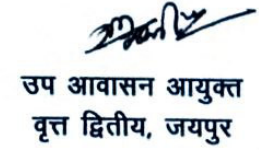 उप आवासन आयुक्त
वृत्त द्वितीय, जयपुर